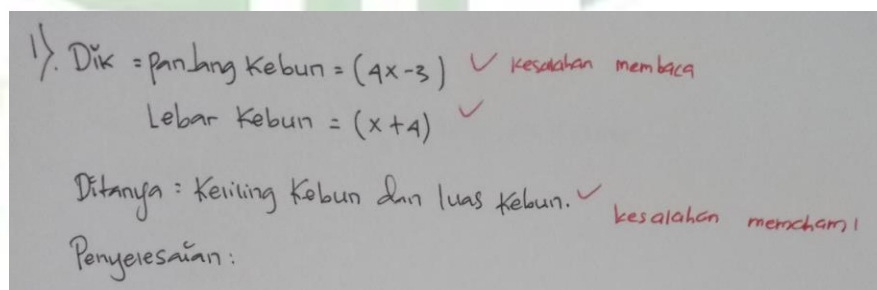 1). Dik = panjang Kebun = (4x-3) ✓ kesalahan membaca
Lebar Kebun = (x+4) ✓
Ditanya : Keliling Kebun dan luas Kebun. ✓ kesalahan memahami
Penyelesaian :